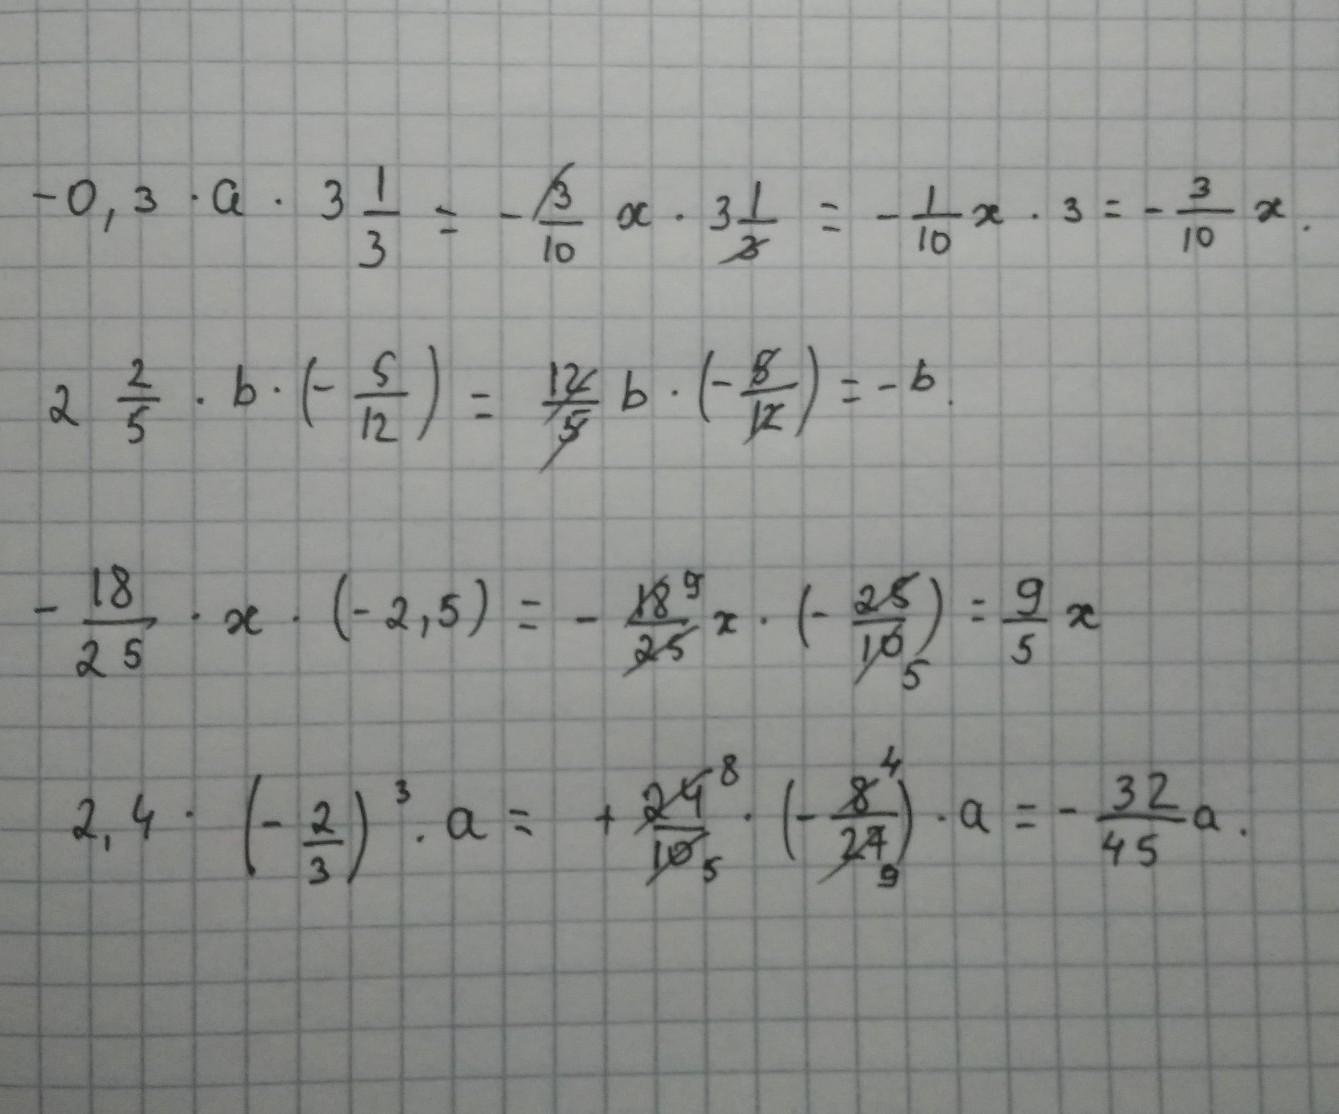 -0,3 · a · 3 1/3 = - 3/10 x · 3 1/3 = - 1/10 x · 3 = - 3/10 x.
2 2/5 · b · (- 5/12) = 12/5 b · (- 5/12) = - b.
- 18/25 · x · (-2,5) = - 18 9/25 x · (- 25/10 5) = 9/5 x
2,4 · (- 2/3)³ · a = + 24 8/10 5 · (- 8 4/27 9) · a = - 32/45 a.